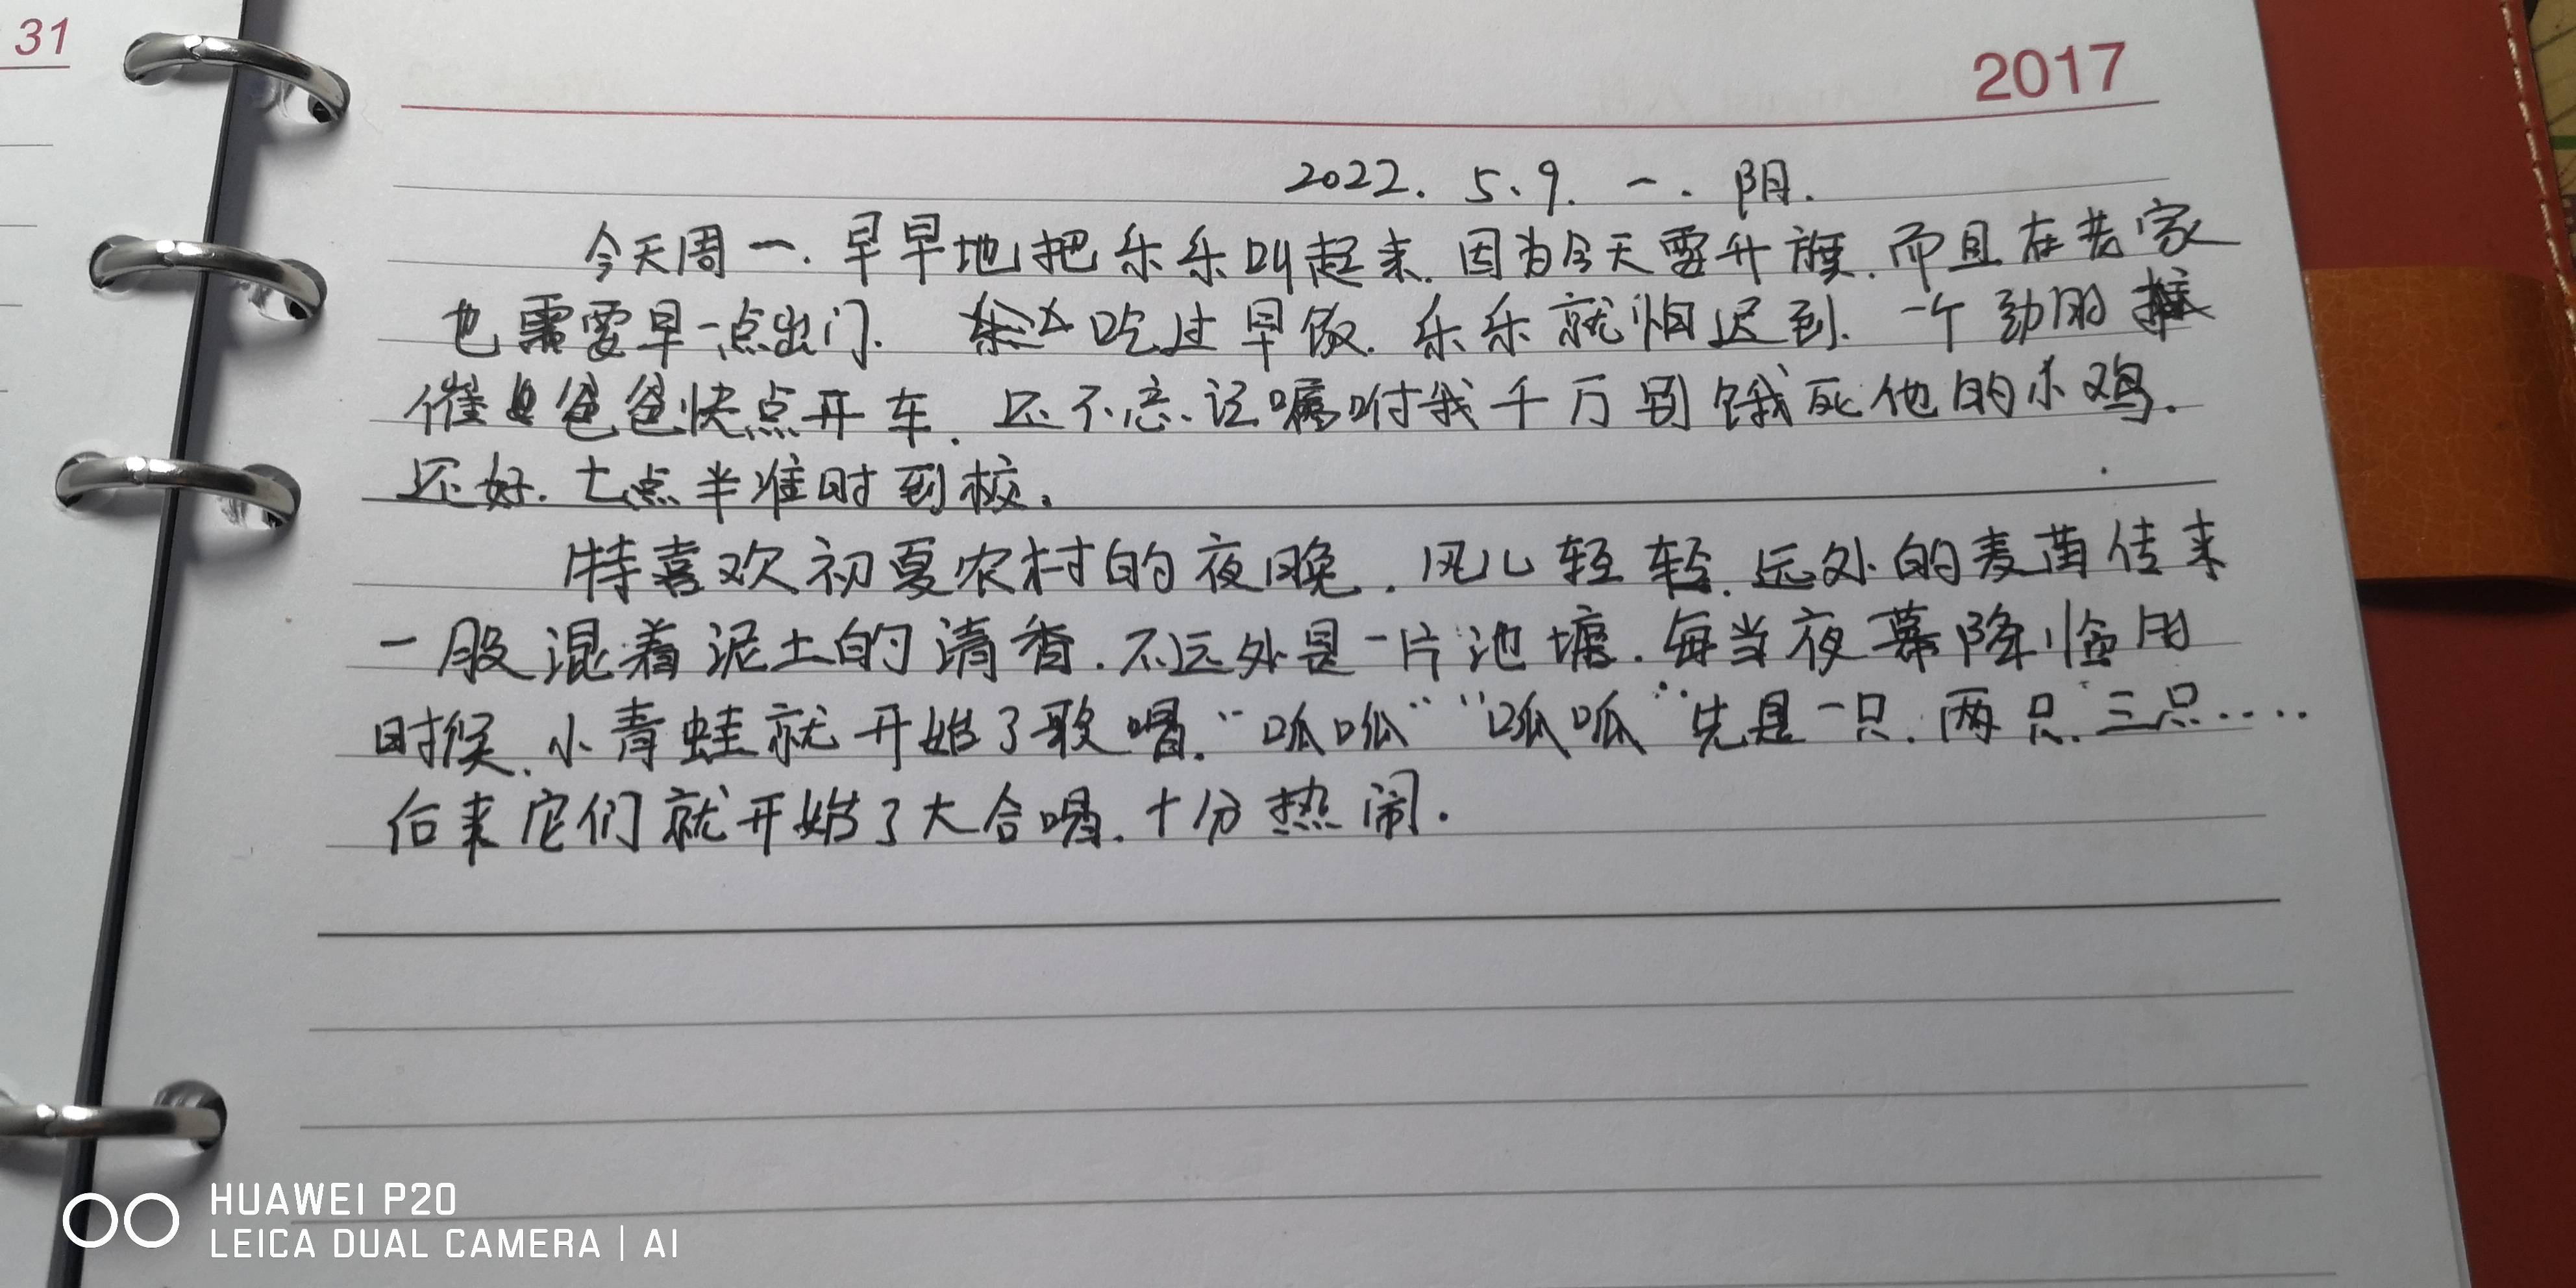 31
2017
2022. 5.9. 一. 阴.
今天周一. 早早地把乐乐叫起来. 因为今天要升旗. 而且在老家
也需要早一点出门. 吃过早饭. 乐乐就怕迟到. 一个劲的
催爸爸快点开车. 还不忘记嘱咐我千万别饿死他的小鸡.
还好. 七点半准时到校.
特喜欢初夏农村的夜晚. 风儿轻轻. 远处的麦苗传来
一股混着泥土的清香. 不远处是一片池塘. 每当夜幕降临的
时候. 小青蛙就开始了歌唱. “呱呱” “呱呱” 先是一只. 两只. 三只....
后来它们就开始了大合唱. 十分热闹.
HUAWEI P20
LEICA DUAL CAMERA | AI